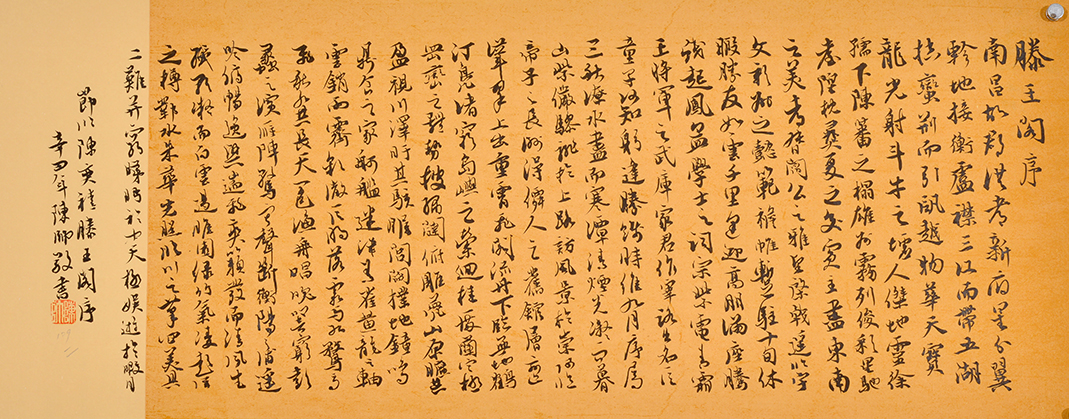 滕王閣序
南昌故郡洪都新府星分翼
軫地接衡廬襟三江而帶五湖
控蠻荊而引甌越物華天寶
龍光射斗牛之墟人傑地靈徐
孺下陳蕃之榻雄州霧列俊彩星馳
臺隍枕夷夏之交賓主盡東南
之美都督閻公之雅望棨戟遙臨宇
文新州之懿範襜帷暫駐十旬休
暇勝友如雲千里逢迎高朋滿座騰
蛟起鳳孟學士之詞宗紫電青霜
王將軍之武庫家君作宰路出名區
童子何知躬逢勝餞時維九月序屬
三秋潦水盡而寒潭清煙光凝而暮
山紫儼驂騑於上路訪風景於崇阿臨
帝子之長洲得僊人之舊館層巒
聳翠上出重霄飛閣流丹下臨無地鶴
汀鳧渚窮島嶼之縈迴桂殿蘭宮極
岡巒之體勢披繡闥俯雕甍山原曠其
盈視川澤盱其駭矚閭閻撲地鐘鳴
鼎食之家舸艦迷津青雀黃龍之軸
雲銷雨霽彩徹區明落霞與孤鶩齊
飛秋水共長天一色漁舟唱晚響窮彭
蠡之濱雁陣驚寒聲斷衡陽之浦遙
吟俯暢逸興遄飛爽籟發而清風生
纖歌凝而白雲遏睢園綠竹氣凌彭澤
之樽鄴水朱華光照臨川之筆四美具
二難并窮睇眄於中天極娛遊於暇日
節臨陳奕禧滕王閣序
年陳師敬書